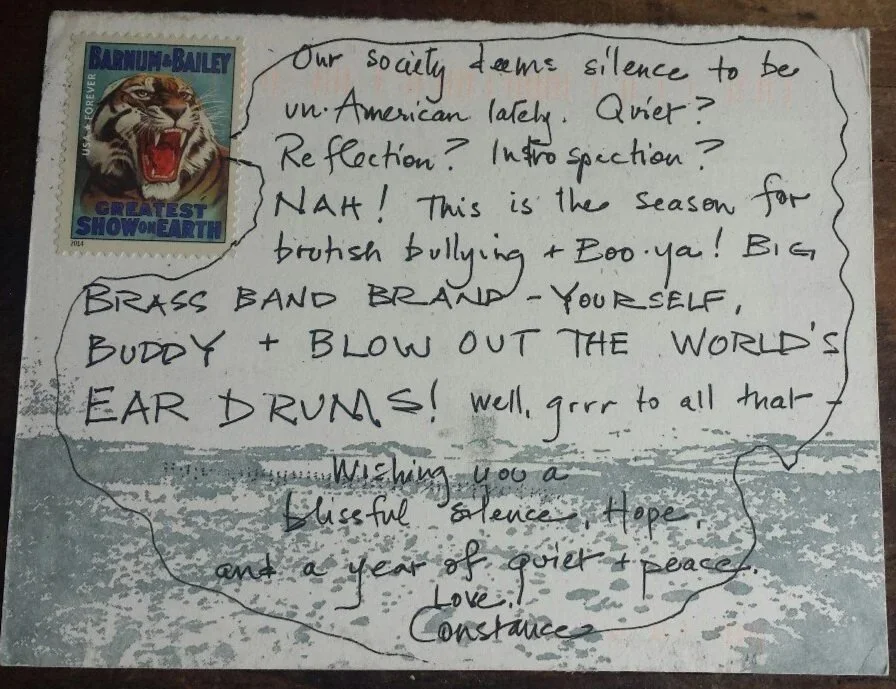 BARNUM & BAILEY
USA ★ FOREVER
GREATEST
SHOW ON EARTH
2014
Our society deems silence to be
un-American lately. Quiet?
Reflection? Introspection?
NAH! This is the season for
brutish bullying + Boo-ya! BIG
BRASS BAND BRAND - YOURSELF,
BUDDY + BLOW OUT THE WORLD'S
EAR DRUMS! Well, grrr to all that -
Wishing you a
blissful silence, Hope,
and a year of quiet + peace.
Love,
Constance